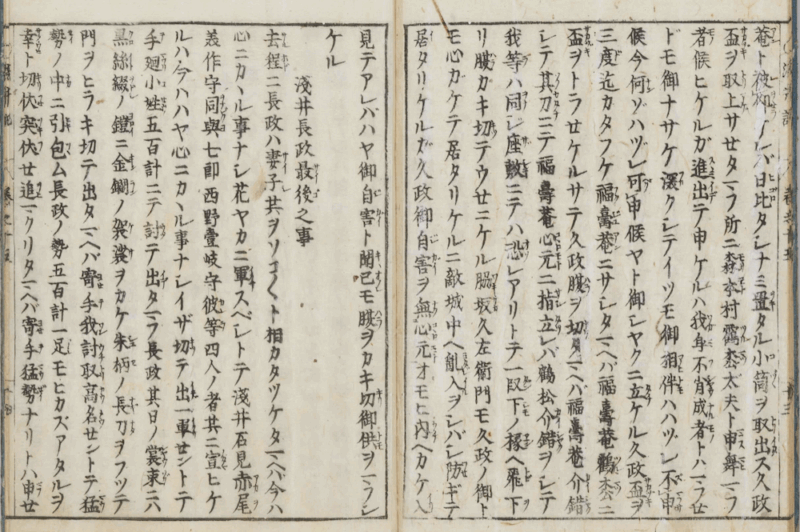 菴ト被仰ケレバ日比タシナミ置タル小筒ヲ取出ス久政
盃ヲ取上サセタマフ所ニ森本村靏松太夫ト申舞マフ
者候ヒケルガ進出テ申ケルハ我身不肖成者トハマウセ
ドモ御ナサケ深クシテイツモ御相伴ハハヅレ不申
候今何ゾハヅレ可申候ヤト御シヤクニ立ケル久政盃ヲ
三度迄カタフケ福壽菴ニサシタマヘバ福壽菴鶴松ニ
盃ヲトラせケルサテ久政腹ヲ切タマヘバ福壽菴介錯
シテ其刀ニテ福壽菴心元ニ指立レバ鶴松介錯ヲシテ
我等ハ同シ座敷ニテハ恐レアリトテ一段下ノ椽ヘ飛下
リ腹ガキ切テウせニケル脇坂久左衛門モ久政ノ御ト
モ心ガケテ居タリケルニ敵城中ヘ亂入ヲシバシ防ギテ
居タリケルガ久政御自害ヲ無心元オモヒ内ヘカケ入
見テアレバハヤ御自害ト聞已モ腹ヲカキ切御供ヲマウシ
ケル
淺井長政最後之事
去程ニ長政ハ妻子共ヲソコくト相カタツケタマヘバ今ハ
心ニカヽル事ナシ花ヤカニ軍スベシトテ淺井石見赤尾
美作守同與七郎西野壹岐守彼等四人ノ者共ニ宣ヒケ
ルハ今ハハヤ心ニカヽル事ナシイザ切テ出一軍せントテ
手廻小姓五百計ニテ討テ出タマフ長政其日ノ裳束ニハ
黒絲綴ノ鎧ニ金襴ノ袈裟ヲカケ朱柄ノ長刀ヲフツテ
門ヲヒラキ切テ出タマヘバ寄手我討取高名せントテ猛
勢ノ中ニ引包ム長政ノ勢五百計一足モヒカズアタルヲ
幸ト切伏突伏せ追マクリタマヘバ寄手猛勢ナリトハ申せ